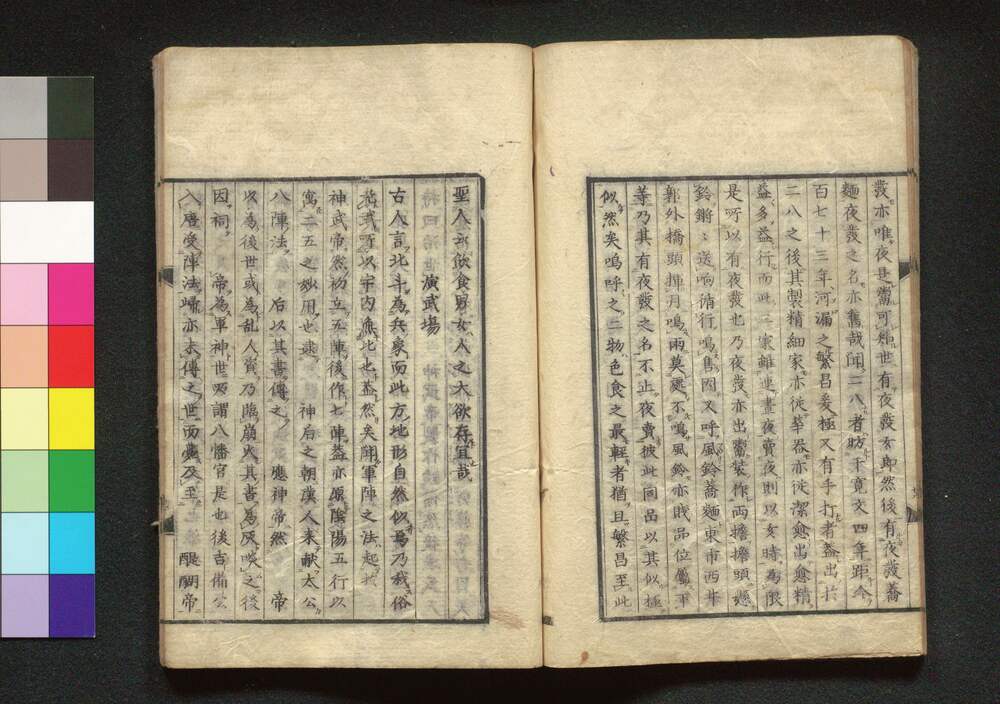 發亦唯夜是鬻可知世有夜發女即然後有夜發蕎
麵夜發之名亦舊哉聞二八者昉于寛文四年距今
百七十三年河漏之繁昌爰極又有手打者蓋出於
二八之後其製精細家亦徙華器亦徙潔愈出愈精
益多益行而此二家離連晝夜賣夜則以女時為限
是所以有夜發也乃夜發亦出鬻装作両擔擔頭懸
鈴鏘〻送响循行鳴售因又呼風鈴蕎麵東市西井
郭外橋頭揮月鳴雨莫處不鳴風鈴亦賎品位屬平
等乃其有夜發之名不止夜賣彼此同品以其似極
似然矣嗚呼之二物色食之最軽者猶且繁昌至此
聖人云飲食男女人之大欲存宜哉
演武場
古人言北斗為兵象而此方地形自然似焉乃我俗
武所以宇内無比也蓋然矣聞軍陣之法起於
神武帝然初立五陣後作七陣蓋亦原陰陽五行以
寓二五之妙用也逮 神后之朝漢人来献太公
八陣法 后以其書傳之 應神帝然 帝
以為後世或為乱人資乃臨崩火其書為灰啖之後
因祠 帝為軍神世所謂八幡宮是也後吉備公
入唐受陣法歸亦未傳之世而薨及至 醍醐帝